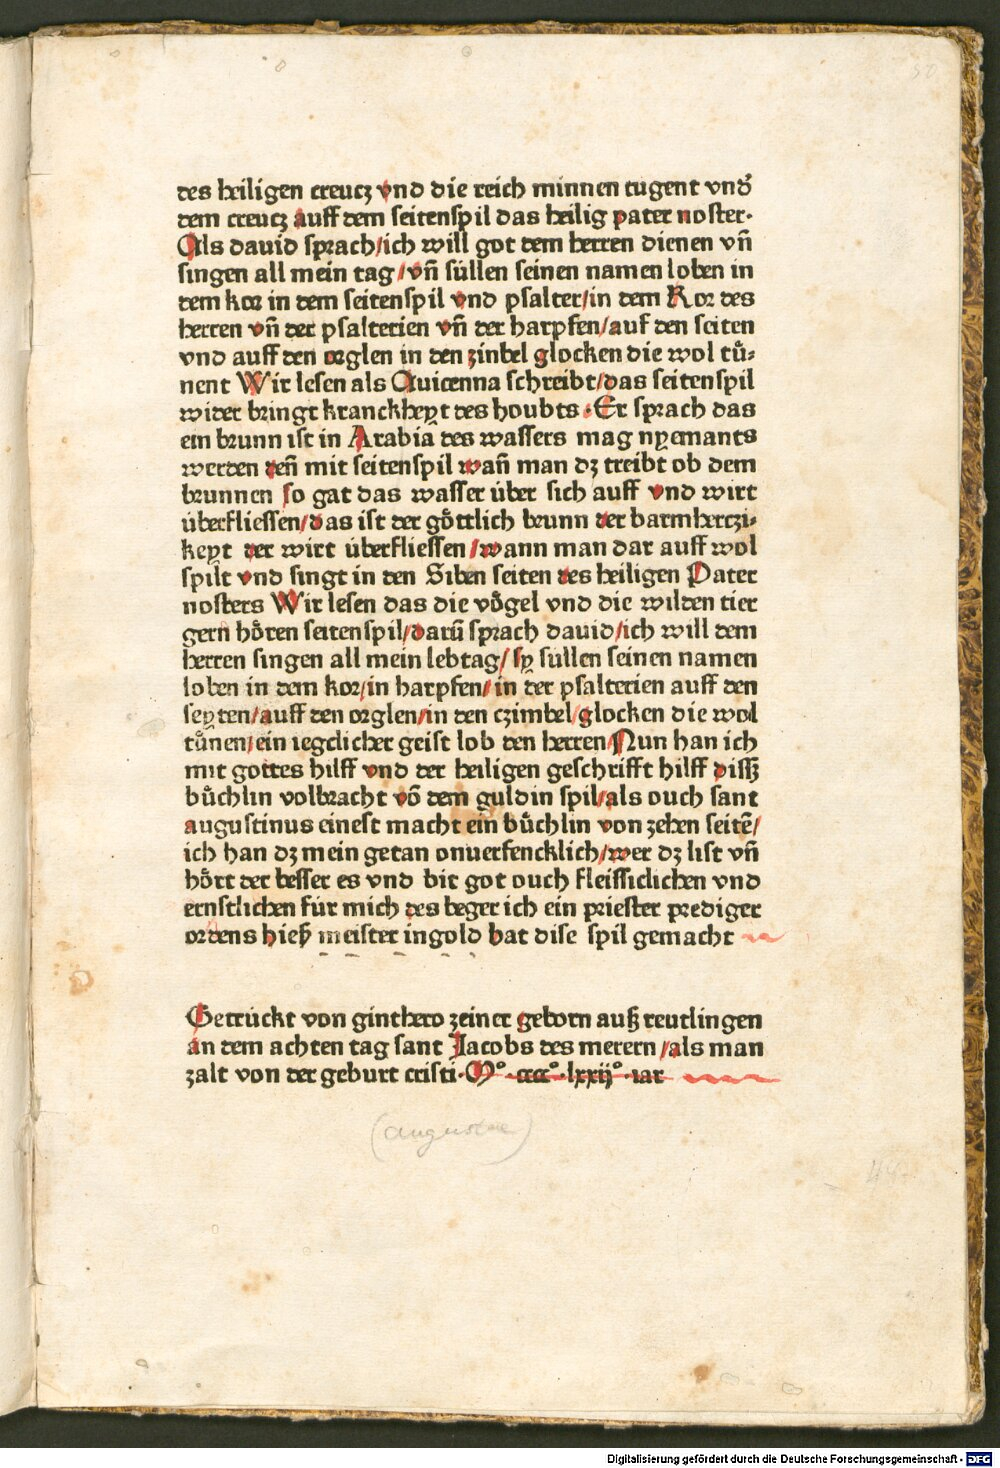 des heiligen creucz vnd die reich minnen tugent vnd̕
dem creucz auff dem seitenspil das heilig pater noster.
Als dauid sprach/ich will got dem herren dienen vñ
singen all mein tag/vñ süllen seinen namen loben in
dem kor in dem seitenspil vnd psalter/in dem Kor des
herren vñ der psalterien vñ der harpfen/auf den seiten
vnd auff den orglen in den zinbel glocken die wol tuͤ⸗
nent Wir lesen als Auicenna schreibt/das seitenspil
wider bringt kranckheyt des houbts. Er sprach das
ein brunn ist in Arabia des wassers mag nyemants
werden deñ mit seitenspil wañ man dz treibt ob dem
brunnen so gat das wasser über sich auff vnd wirt
überfliessen/das ist der goͤttlich brunn der barmherczi⸗
keyt der wirt überfliessen/wann man dar auff wol
spilt vnd singt in den Siben seiten des heiligen Pater
nosters Wir lesen das die voͤgel vnd die wilden tier
gern hoͤren seitenspil/darū sprach dauid/ich will dem
herren singen all mein lebtag/sy süllen seinen namen
loben in dem kor/in harpfen/in der psalterien auff den
seyten/auff den orglen/in den czimbel/glocken die wol
tuͤnen/ein iegclicher geist lob den herren/Nun han ich
mit gottes hilff vnd der heiligen geschrifft hilff dissz
buͤchlin volbracht võ dem guldin spil/als ouch sant
augustinus einest macht ein buͤchlin von zehen seitē/
ich han dz mein getan onuerfencklich/wer dz list vñ
hoͤrt der besser es vnd bit got ouch fleissiclichen vnd
ernstlichen für mich des beger ich ein priester prediger
ordens hieß meister ingold hat dise spil gemacht
Getrückt von ginthero zeiner geborn auß reutlingen
an dem achten tag sant Jacobs des merern/als man
zalt von der geburt cristi.Mº.cccc°.lxxijº.iar
(augustae)
Digitalisierung gefördert durch die Deutsche Forschungsgemeinschaft - DFG